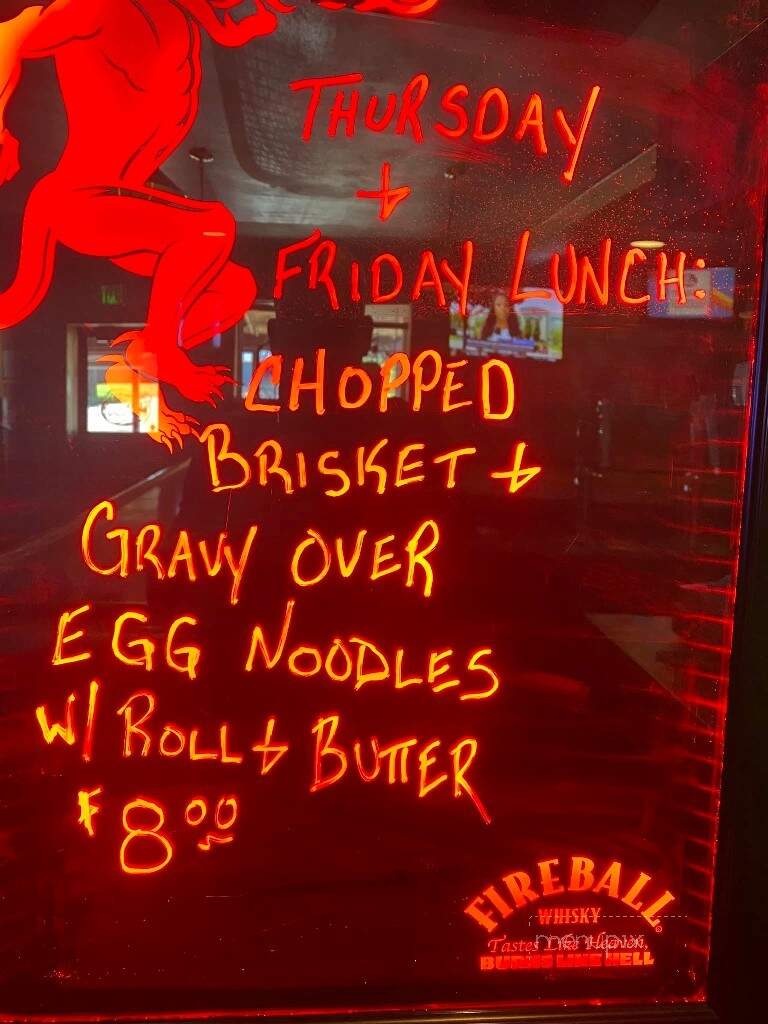 THURSDAY
+
FRIDAY LUNCH:
CHOPPED
BRISKET +
GRAVY OVER
EGG NOODLES
W/ ROLL + BUTTER
$8.00
FIREBALL
WHISKY
Tastes Like Heaven,
BURNS LIKE HELL
menupix